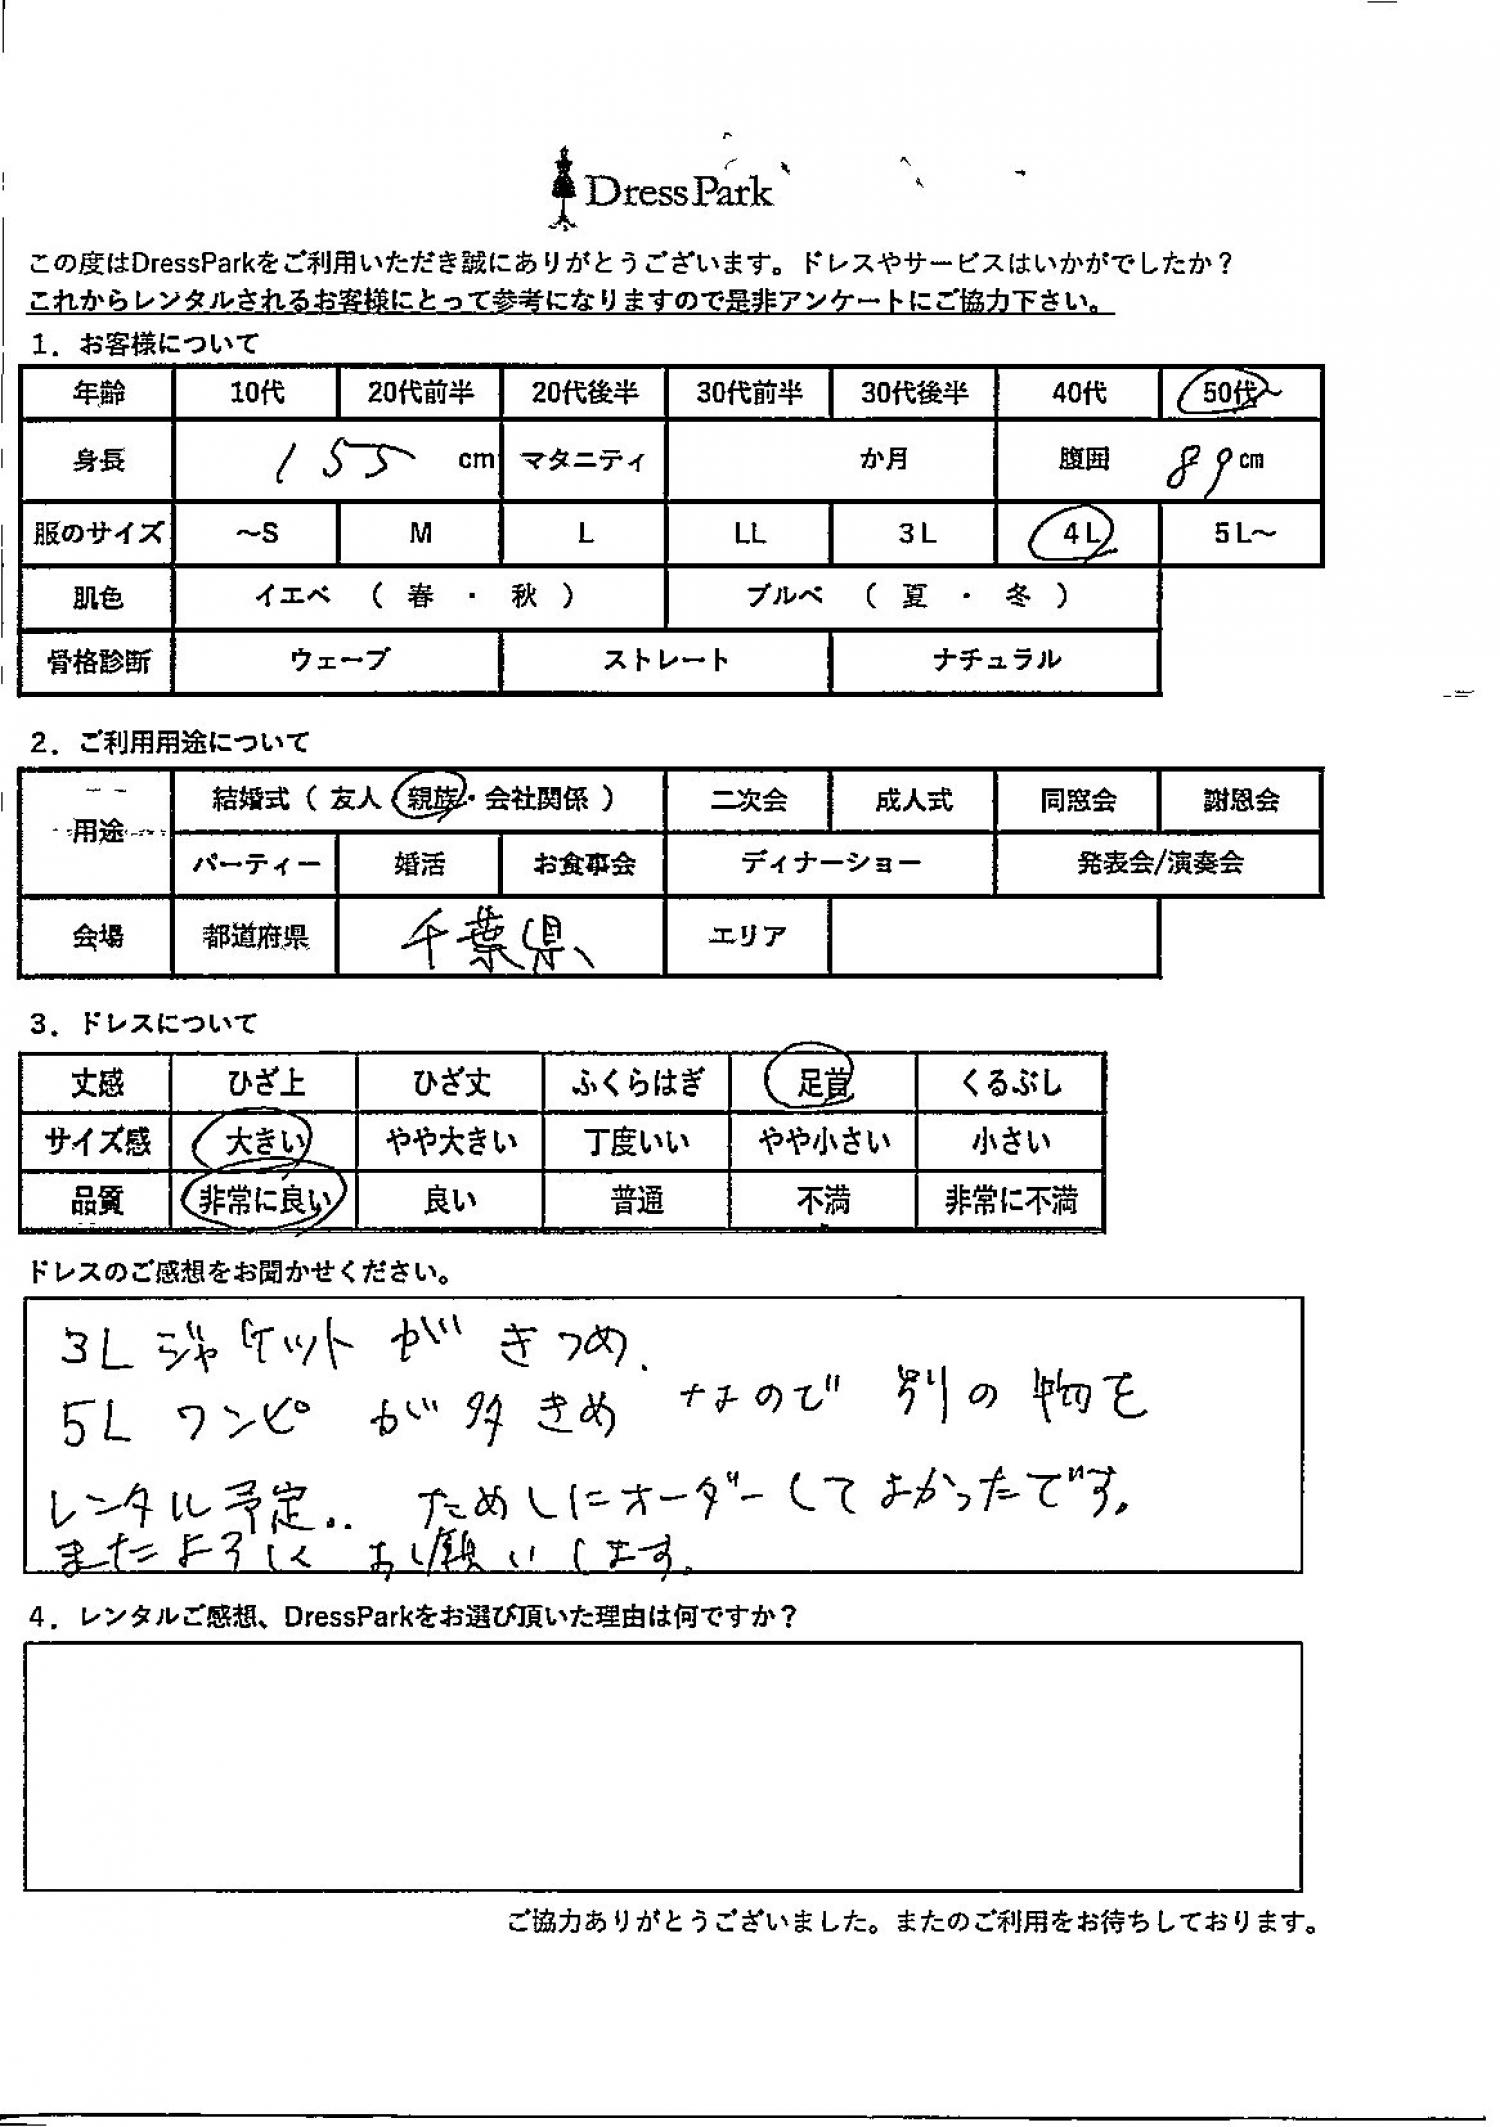 DressPark
この度はDressParkをご利用いただき誠にありがとうございます。ドレスやサービスはいかがでしたか？
これからレンタルされるお客様にとって参考になりますので是非アンケートにご協力下さい。
1．お客様について
年齢 10代 20代前半 20代後半 30代前半 30代後半 40代 50代～
身長 155 cm マタニティ か月 腹囲 89 cm
服のサイズ ～S M L LL 3L 4L 5L～
肌色 イエベ （ 春 ・ 秋 ） ブルベ （ 夏 ・ 冬 ）
骨格診断 ウェーブ ストレート ナチュラル
2．ご利用用途について
用途 結婚式（ 友人・親族・会社関係 ） 二次会 成人式 同窓会 謝恩会
パーティー 婚活 お食事会 ディナーショー 発表会/演奏会
会場 都道府県 千葉県、 エリア
3．ドレスについて
丈感 ひざ上 ひざ丈 ふくらはぎ 足首 くるぶし
サイズ感 大きい やや大きい 丁度いい やや小さい 小さい
品質 非常に良い 良い 普通 不満 非常に不満
ドレスのご感想をお聞かせください。
3L ジャケット が きつめ、
5L ワンピ が 多きめ なので 別の 物を
レンタル予定.. ためしにオーダーしてよかったです。
またよろしく お願いします。
4．レンタルご感想、DressParkをお選び頂いた理由は何ですか？
ご協力ありがとうございました。またのご利用をお待ちしております。